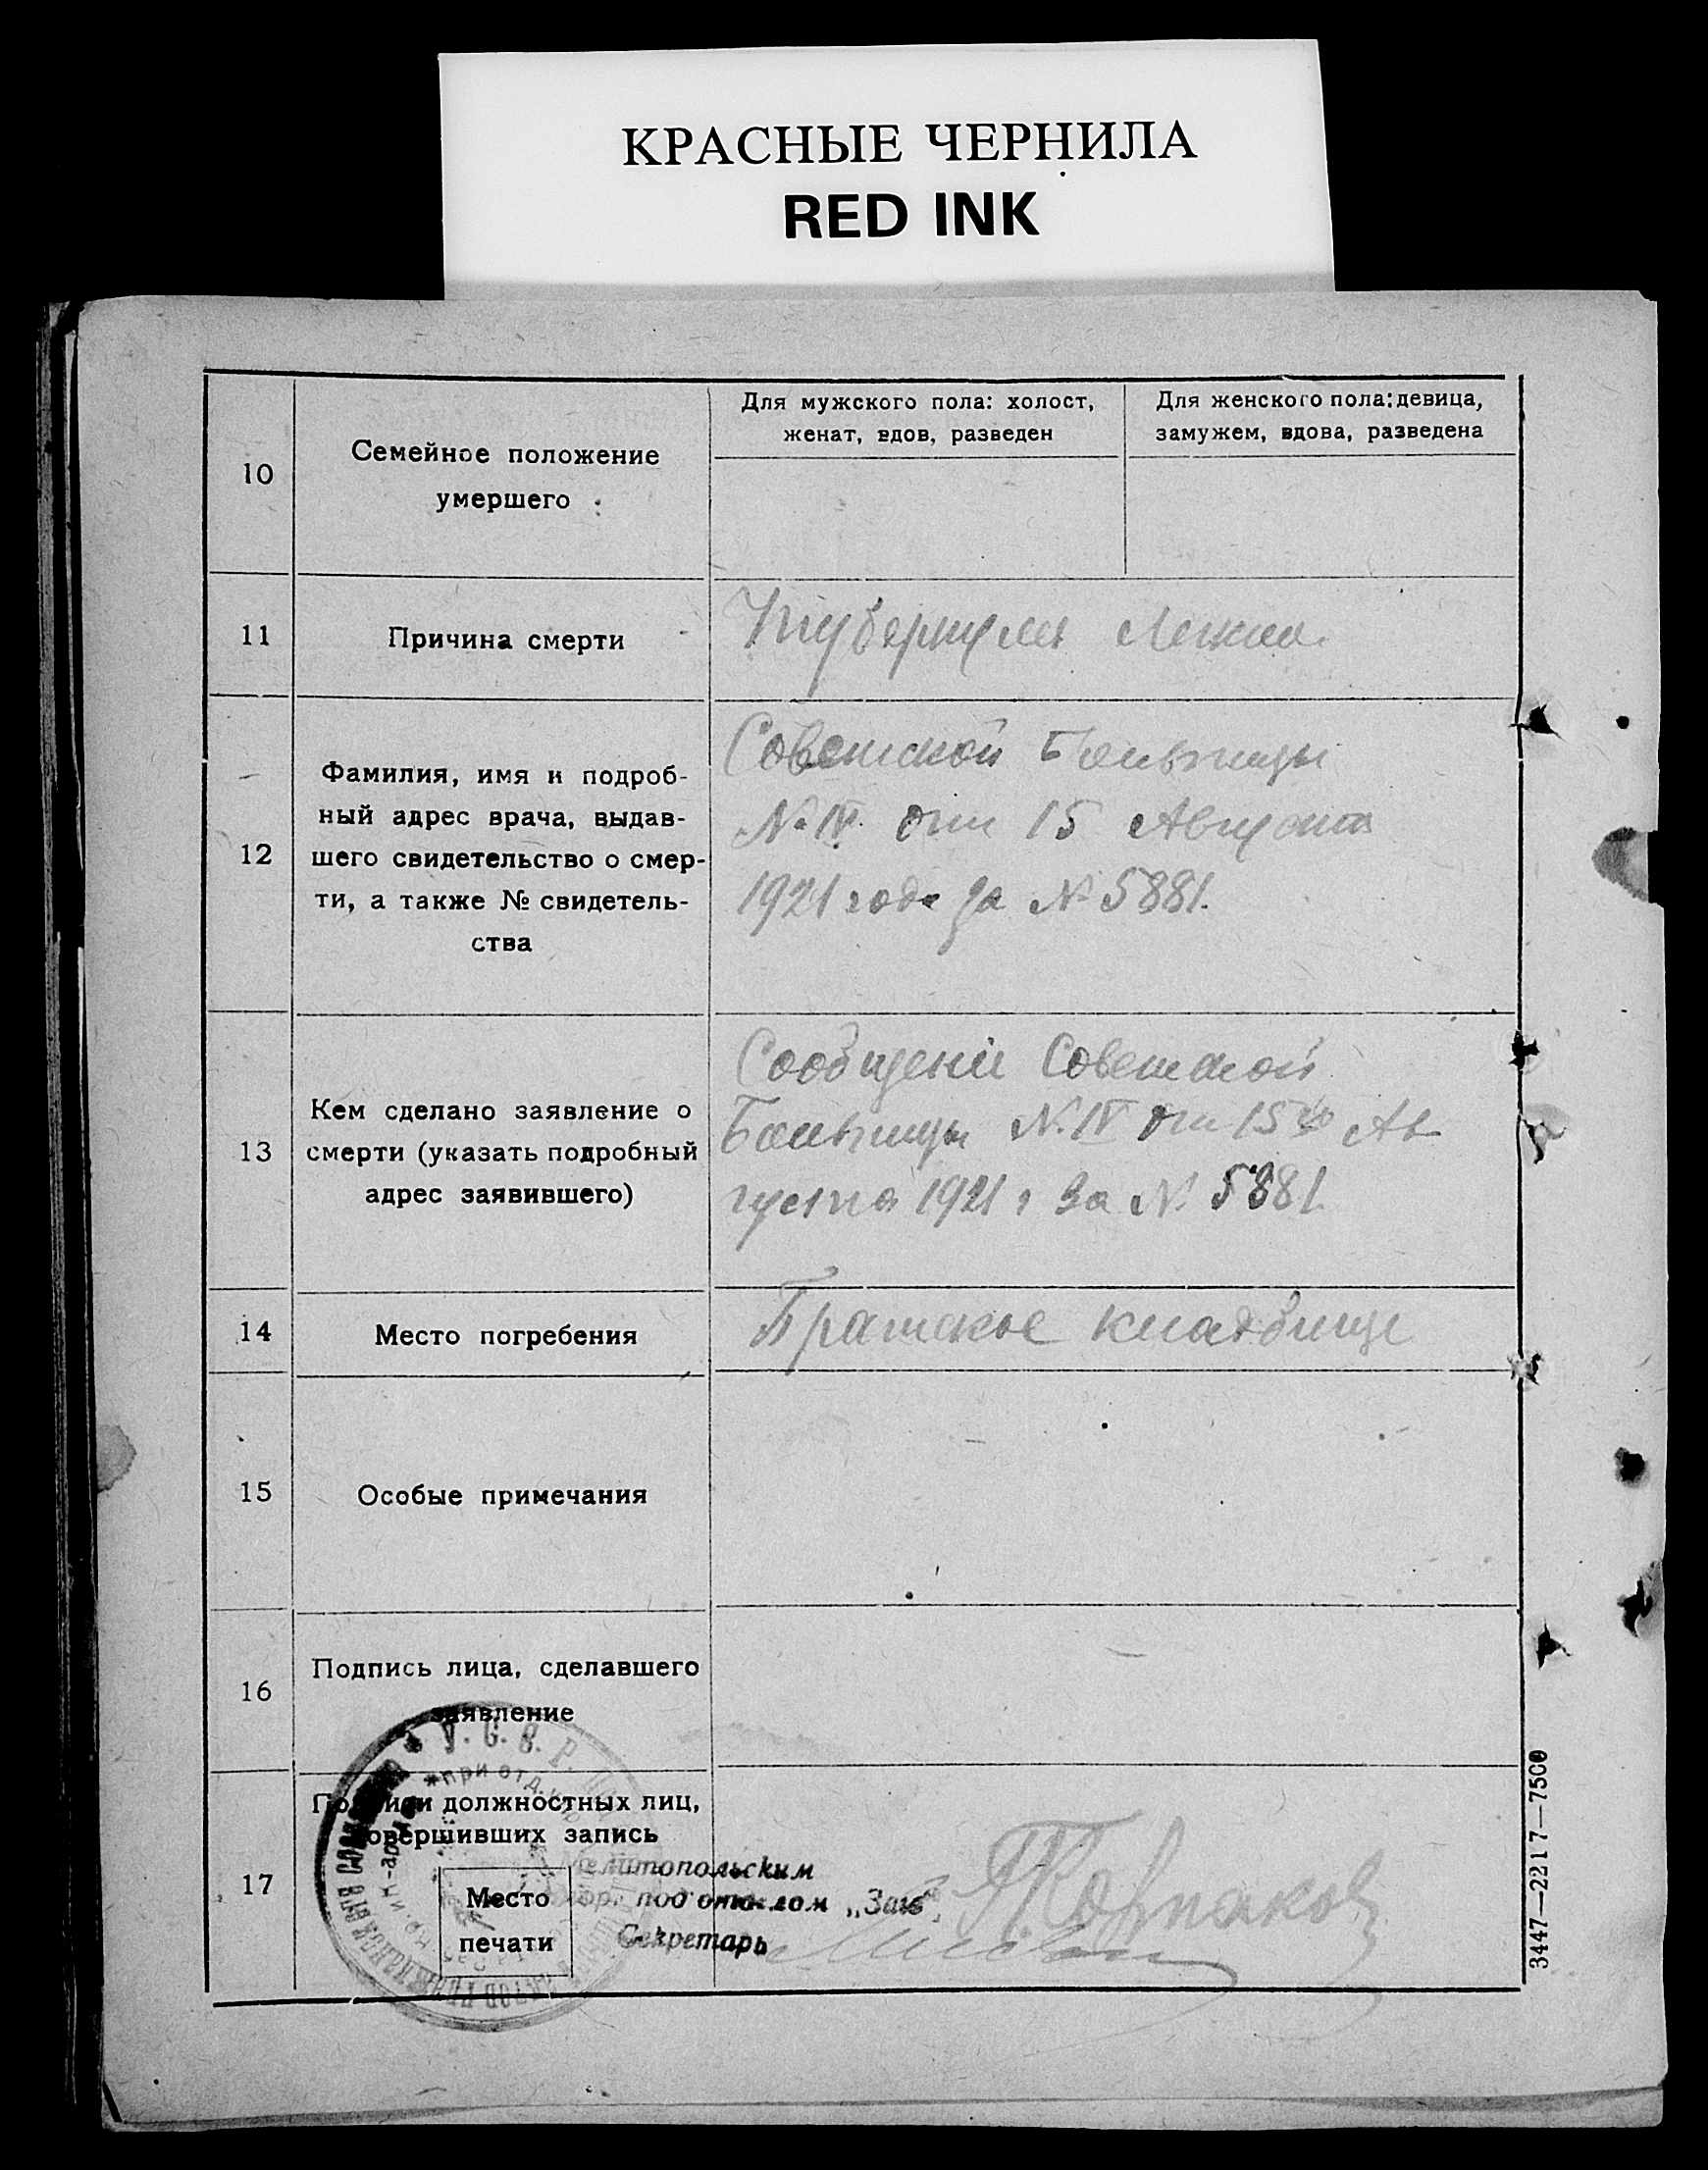 КРАСНЫЕ ЧЕРНИЛА
RED INK
10
Семейное положение
умершего
Для мужского пола: холост,
женат, вдов, разведен
Для женского пола: девица,
замужем, вдова, разведена
11
Причина смерти
Туберкулез
12
Фамилия, имя и подроб-
ный адрес врача, выдав-
шего свидетельство о смер-
ти, а также № свидетель-
ства
Советской Больницы
№ IV. от 15 Августа
1921 года за № 5881.
13
Кем сделано заявление о
смерти (указать подробный
адрес заявившего)
Сообщение Советской
Больницы №. IV от 15го Ав
густа 1921 г за № 5881
14
Место погребения
Братское кладбище
15
Особые примечания
16
Подпись лица, сделавшего
заявление
17
Подписи должностных лиц,
совершивших запись
Место
печати
У. С. С. Р.
при отд.
Мелитопольским
под отделом „Загс“
Секретарь
3447—2217—7500